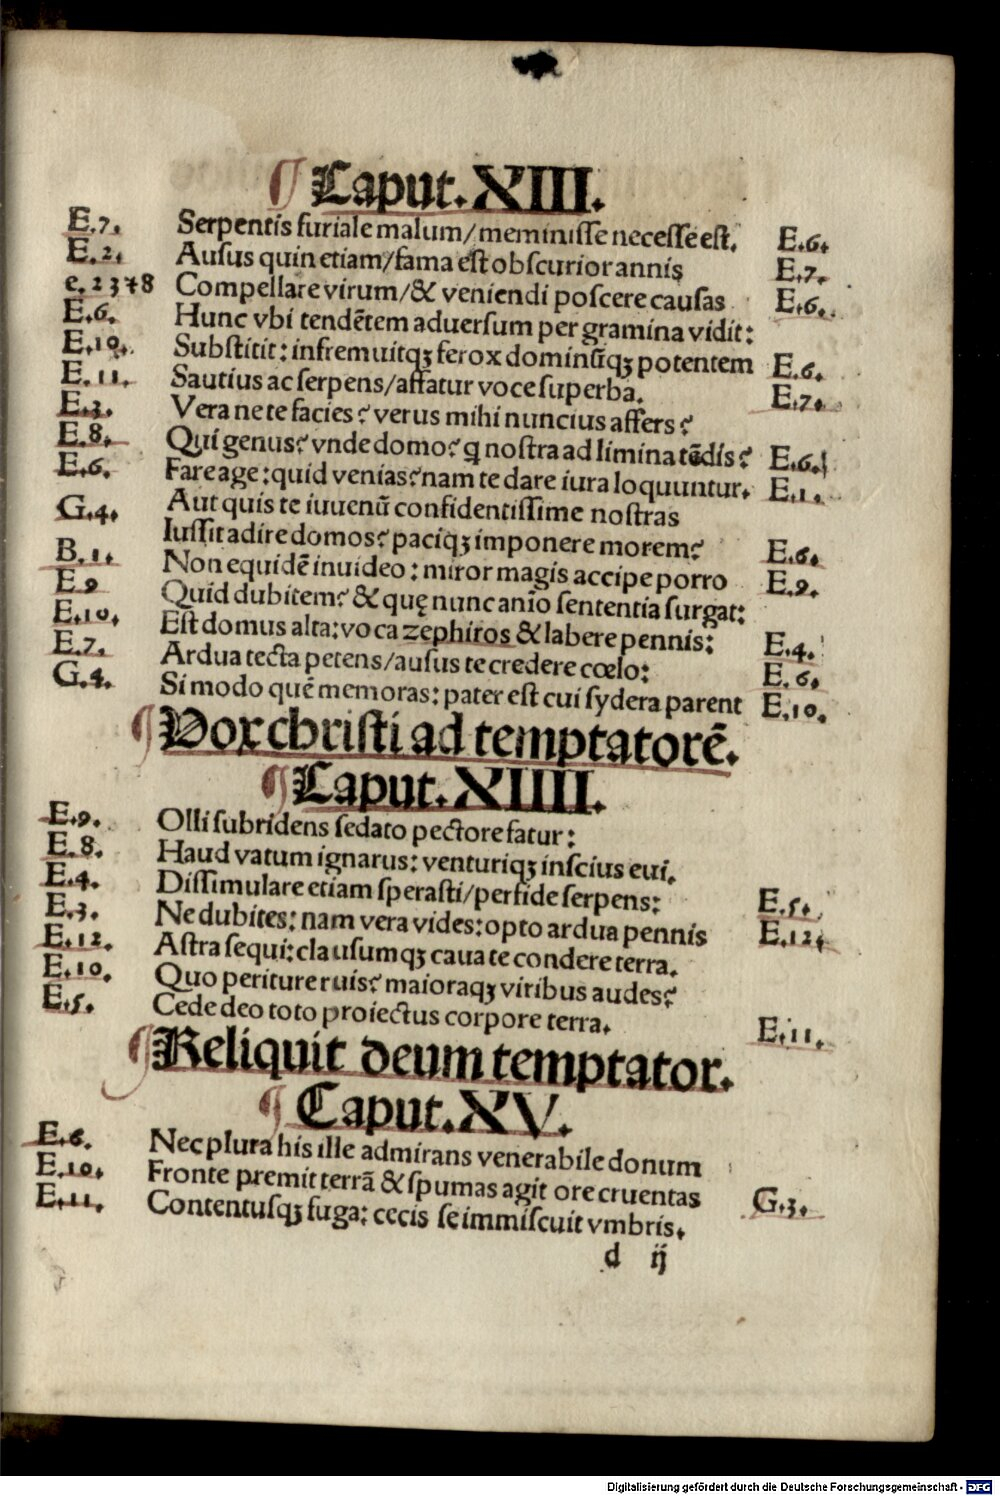 ¶ Caput. XIII.
E.7. Serpentis furiale malum/meminisse necesse est. E.6.
E.2. Ausus quin etiam/fama est obscurior annis E.7.
e.2378 Compellare virum/& veniendi poscere causas E.6.
E.6. Hunc vbi tendētem aduersum per gramina vidit:
E.10. Substitit: infremuitqꝫ ferox dominūqꝫ potentem E.6.
E.11. Sautius ac serpens/affatur voce superba. E.7.
E.3. Vera ne te facies? verus mihi nuncius affers?
E.8. Qui genus? vnde domo? q nostra ad limina tēdis? E.6.
E.6. Fare age: quid venias? nam te dare iura loquuntur. E.1.
G.4. Aut quis te iuuenū confidentissime nostras
Iussit adire domos? paciqꝫ imponere morem? E.6.
B.1. Non equidē inuideo: miror magis accipe porro E.9.
E.9 Quid dubitem? & quę nunc anīo sententia surgat:
E.10. Est domus alta: voca zephiros & labere pennis: E.4.
E.7. Ardua tecta petens/ausus te credere cœlo: E.6.
G.4. Si modo quē memoras: pater est cui sydera parent E.10.
¶ Vox christi ad temptatorē.
¶ Caput. XIIII.
E.9. Olli subridens sedato pectore fatur:
E.8. Haud vatum ignarus: venturiqꝫ inscius eui.
E.4. Dissimulare etiam sperasti/perfide serpens: E.5.
E.3. Ne dubites: nam vera vides: opto ardua pennis E.12.
E.12. Astra sequi: clausumqꝫ caua te condere terra.
E.10. Quo periture ruis? maioraqꝫ viribus audes?
E.5. Cede deo toto proiectus corpore terra. E.11.
¶ Reliquit deum temptator.
¶ Caput. XV.
E.6. Nec plura his ille admirans venerabile donum
E.10. Fronte premit terrā & spumas agit ore cruentas G.3.
E.11. Contentusqꝫ fuga: cecis se immiscuit vmbris.
d ij
Digitalisierung gefördert durch die Deutsche Forschungsgemeinschaft - DFG